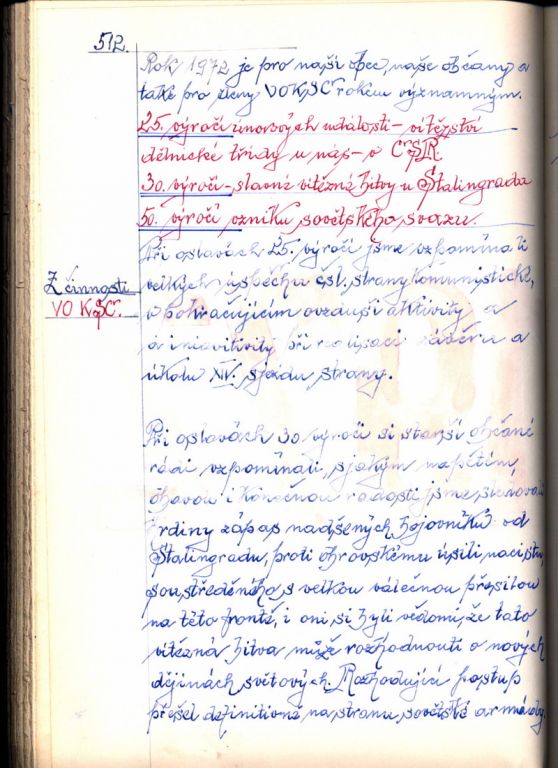 512.
Rok 1972 je pro naši obec, naše občany a
také pro členy VO KSČ rokem významným.
25. výročí únorových událostí - vítězství
dělnické třídy u nás - v ČSR
30. výročí - slavné vítězné bitvy u Stalingradu
50. výročí vzniku sovětského svazu.
Při oslavách 25. výročí jsme vzpomínali
velkých úspěchů čsl. strany komunistické,
v pokračujícím ovzduší aktivity a
a iniciativity při realisaci závěrů a
úkolů XIV. sjezdu strany.
Z činnosti
VO KSČ.
Při oslavách 30 výročí si starší občané
rádi vzpomínali, s jakým napětím,
obavou i konečnou radostí jsme sledovali
hrdiny zápas nadšených bojovníků od
Stalingradu, proti obrovskému úsilí nacistů,
soustředěného s velkou válečnou přesilou
na této frontě, i oni si byli vědomi, že tato
vítězná bitva může rozhodnouti o nových
dějinách světových. Rozhodující postup
přešel definitivně na stranu sovětské armády.